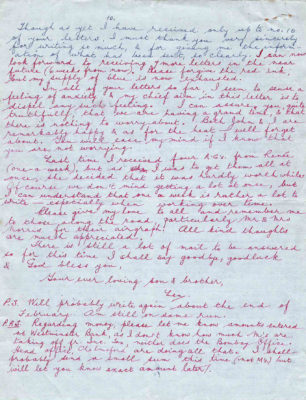 10.
Though as yet I have received only up to no. 10
of your letters, I must thank you very sincerely
for writing so much, & for giving me the inform-
ation of what had been sent so clearly. I can now
look forward to receiving 7 more letters in the near
future (6 weeks from now). Please forgive the red ink
but my supply of blue is now exhausted.
In all of your letters so far, I seem to sense a
feeling of anxiety & my chief aim in this letter, is to
dispel any such feeling. I can assure you quite
truthfully that you are having a groan lent, & that
there is nothing to worry about. Both John & I are
remarkably happy & as for the heat - well forget
about. This will ease my mind if I know that
you are not worrying.
Last time I received four A.G's from René.
One a week, but as she was to get them all at
once, she decided that it was hardly worth while.
Of course we don't mind getting a lot at once, but
I can understand that one a week is rather a lot to
write - especially when working over time.
Please give my love to all and remember me
to those along the road, particularly Mr & Mrs
Norris for their airgraph! All kind thoughts
are much appreciated.
There is still a lot of mail to be answered
so for this time I shall say goodbye, good luck
& God bless you,
Your ever loving son & brother,
P.S. Will probably write again about the end of
February. Am still on same run.
P.P.S. Regarding money, please let me know amounts entered
at Westminster Bank, as I don't know how much M/W are
taking off for Inc. Tax, neither does the Bombay Office.
Head Office are doing all that. I shall
probably send a small sum this time (not MW) but
will let you know exact amount later.